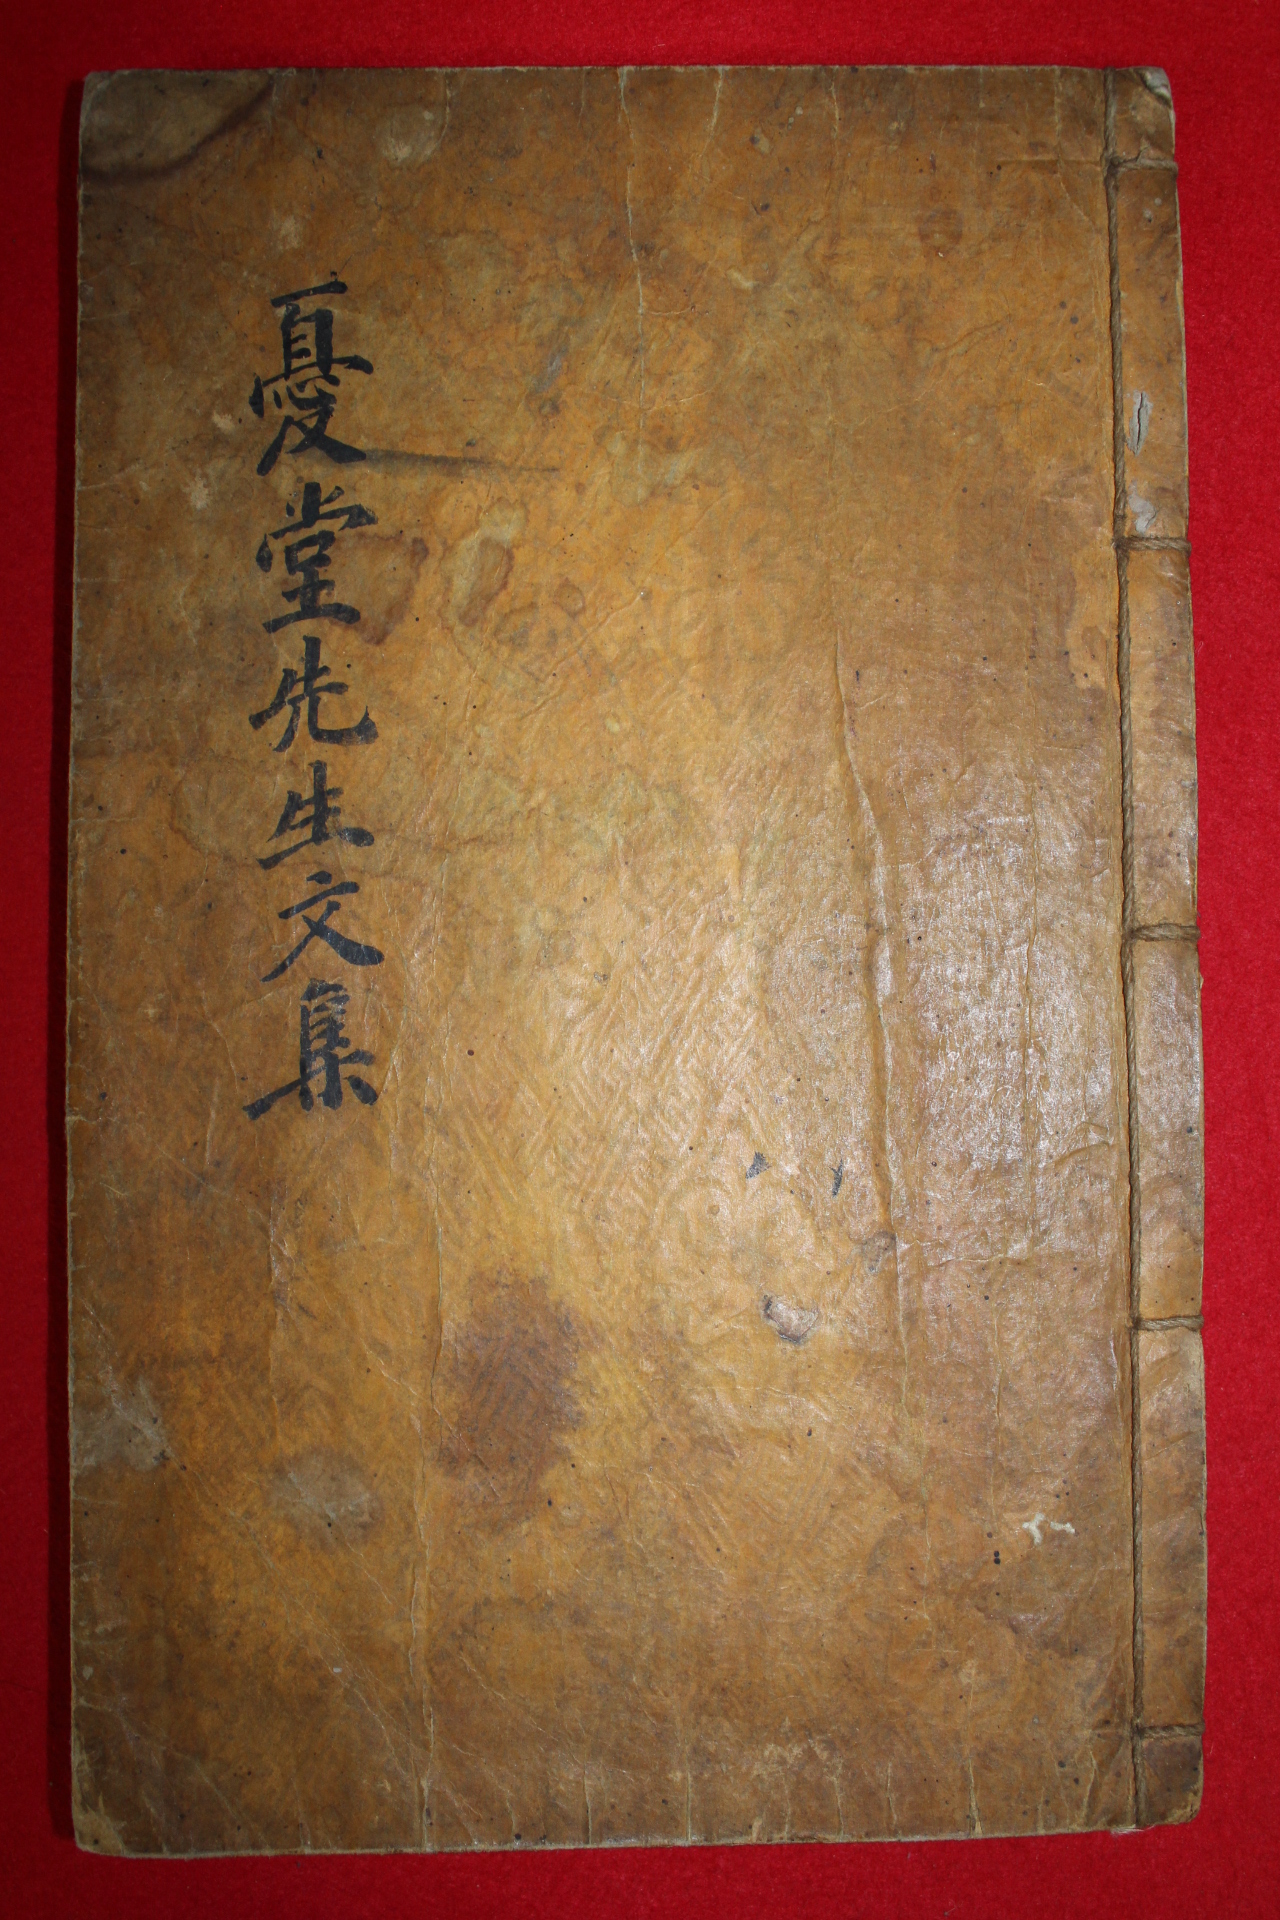 憂堂先生文集